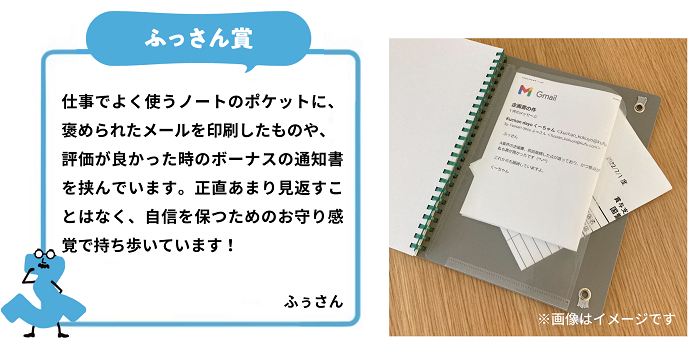 ふっさん賞
仕事でよく使うノートのポケットに、
褒められたメールを印刷したものや、
評価が良かった時のボーナスの通知書
を挟んでいます。正直あまり見返すこ
とはなく、自信を保つためのお守り感
覚で持ち歩いています！
ふぅさん
Gmail
企画書の件
くーちゃん
ふぅさん
くーちゃん
※画像はイメージです